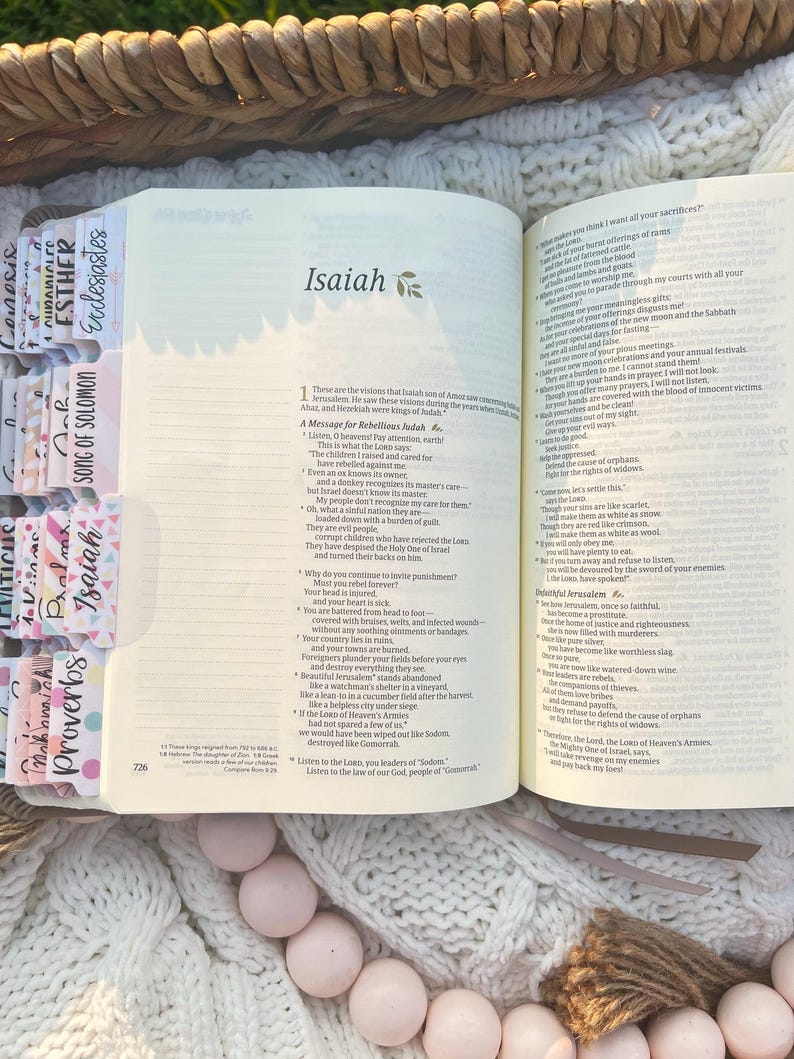 Genesis
1 CHRONICLES
ESTHER
Ecclesiastes
Job
SONG OF SOLOMON
LEVITICUS
Psalms
Isaiah
Proverbs
Isaiah
1 These are the visions that Isaiah son of Amoz saw concerning Judah and
Jerusalem. He saw these visions during the years when Uzziah, Jotham,
Ahaz, and Hezekiah were kings of Judah.*
A Message for Rebellious Judah
2 Listen, O heavens! Pay attention, earth!
This is what the LORD says:
“The children I raised and cared for
have rebelled against me.
3 Even an ox knows its owner,
and a donkey recognizes its master’s care—
but Israel doesn’t know its master.
My people don’t recognize my care for them.”
4 Oh, what a sinful nation they are—
loaded down with a burden of guilt.
They are evil people,
corrupt children who have rejected the LORD.
They have despised the Holy One of Israel
and turned their backs on him.
5 Why do you continue to invite punishment?
Must you rebel forever?
Your head is injured,
and your heart is sick.
6 You are battered from head to foot—
covered with bruises, welts, and infected wounds—
without any soothing ointments or bandages.
7 Your country lies in ruins,
and your towns are burned.
Foreigners plunder your fields before your eyes
and destroy everything they see.
8 Beautiful Jerusalem* stands abandoned
like a watchman’s shelter in a vineyard,
like a lean-to in a cucumber field after the harvest,
like a helpless city under siege.
9 If the LORD of Heaven’s Armies
had not spared a few of us,*
we would have been wiped out like Sodom,
destroyed like Gomorrah.
10 Listen to the LORD, you leaders of “Sodom.”
Listen to the law of our God, people of “Gomorrah.”
1:1 These kings reigned from 792 to 686 B.C.
1:8 Hebrew The daughter of Zion. 1:9 Greek
version reads a few of our children.
Compare Rom 9:29.
726
11 “What makes you think I want all your sacrifices?”
says the LORD.
“I am sick of your burnt offerings of rams
and the fat of fattened cattle.
I get no pleasure from the blood
of bulls and lambs and goats.
12 When you come to worship me,
who asked you to parade through my courts with all your
ceremony?
13 Stop bringing me your meaningless gifts;
the incense of your offerings disgusts me!
As for your celebrations of the new moon and the Sabbath
and your special days for fasting—
they are all sinful and false.
I want no more of your pious meetings.
14 I hate your new moon celebrations and your annual festivals.
They are a burden to me. I cannot stand them!
15 When you lift up your hands in prayer, I will not look.
Though you offer many prayers, I will not listen,
for your hands are covered with the blood of innocent victims.
16 Wash yourselves and be clean!
Get your sins out of my sight.
Give up your evil ways.
17 Learn to do good.
Seek justice.
Help the oppressed.
Defend the cause of orphans.
Fight for the rights of widows.
18 “Come now, let’s settle this,”
says the LORD.
“Though your sins are like scarlet,
I will make them as white as snow.
Though they are red like crimson,
I will make them as white as wool.
19 If you will only obey me,
you will have plenty to eat.
20 But if you turn away and refuse to listen,
you will be devoured by the sword of your enemies.
I, the LORD, have spoken!”
Unfaithful Jerusalem
21 See how Jerusalem, once so faithful,
has become a prostitute.
Once the home of justice and righteousness,
she is now filled with murderers.
22 Once like pure silver,
you have become like worthless slag.
Once so pure,
you are now like watered-down wine.
23 Your leaders are rebels,
the companions of thieves.
All of them love bribes
and demand payoffs,
but they refuse to defend the cause of orphans
or fight for the rights of widows.
24 Therefore, the Lord, the LORD of Heaven’s Armies,
the Mighty One of Israel, says,
“I will take revenge on my enemies
and pay back my foes!